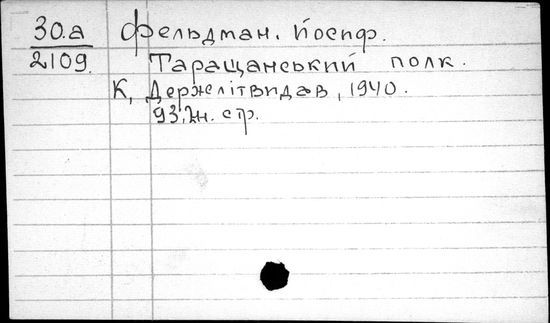 30.а Фельдман. Йосиф.
2109. Таращанський полк.
К, Держлітвидав, 1940.
93,2н. стр.